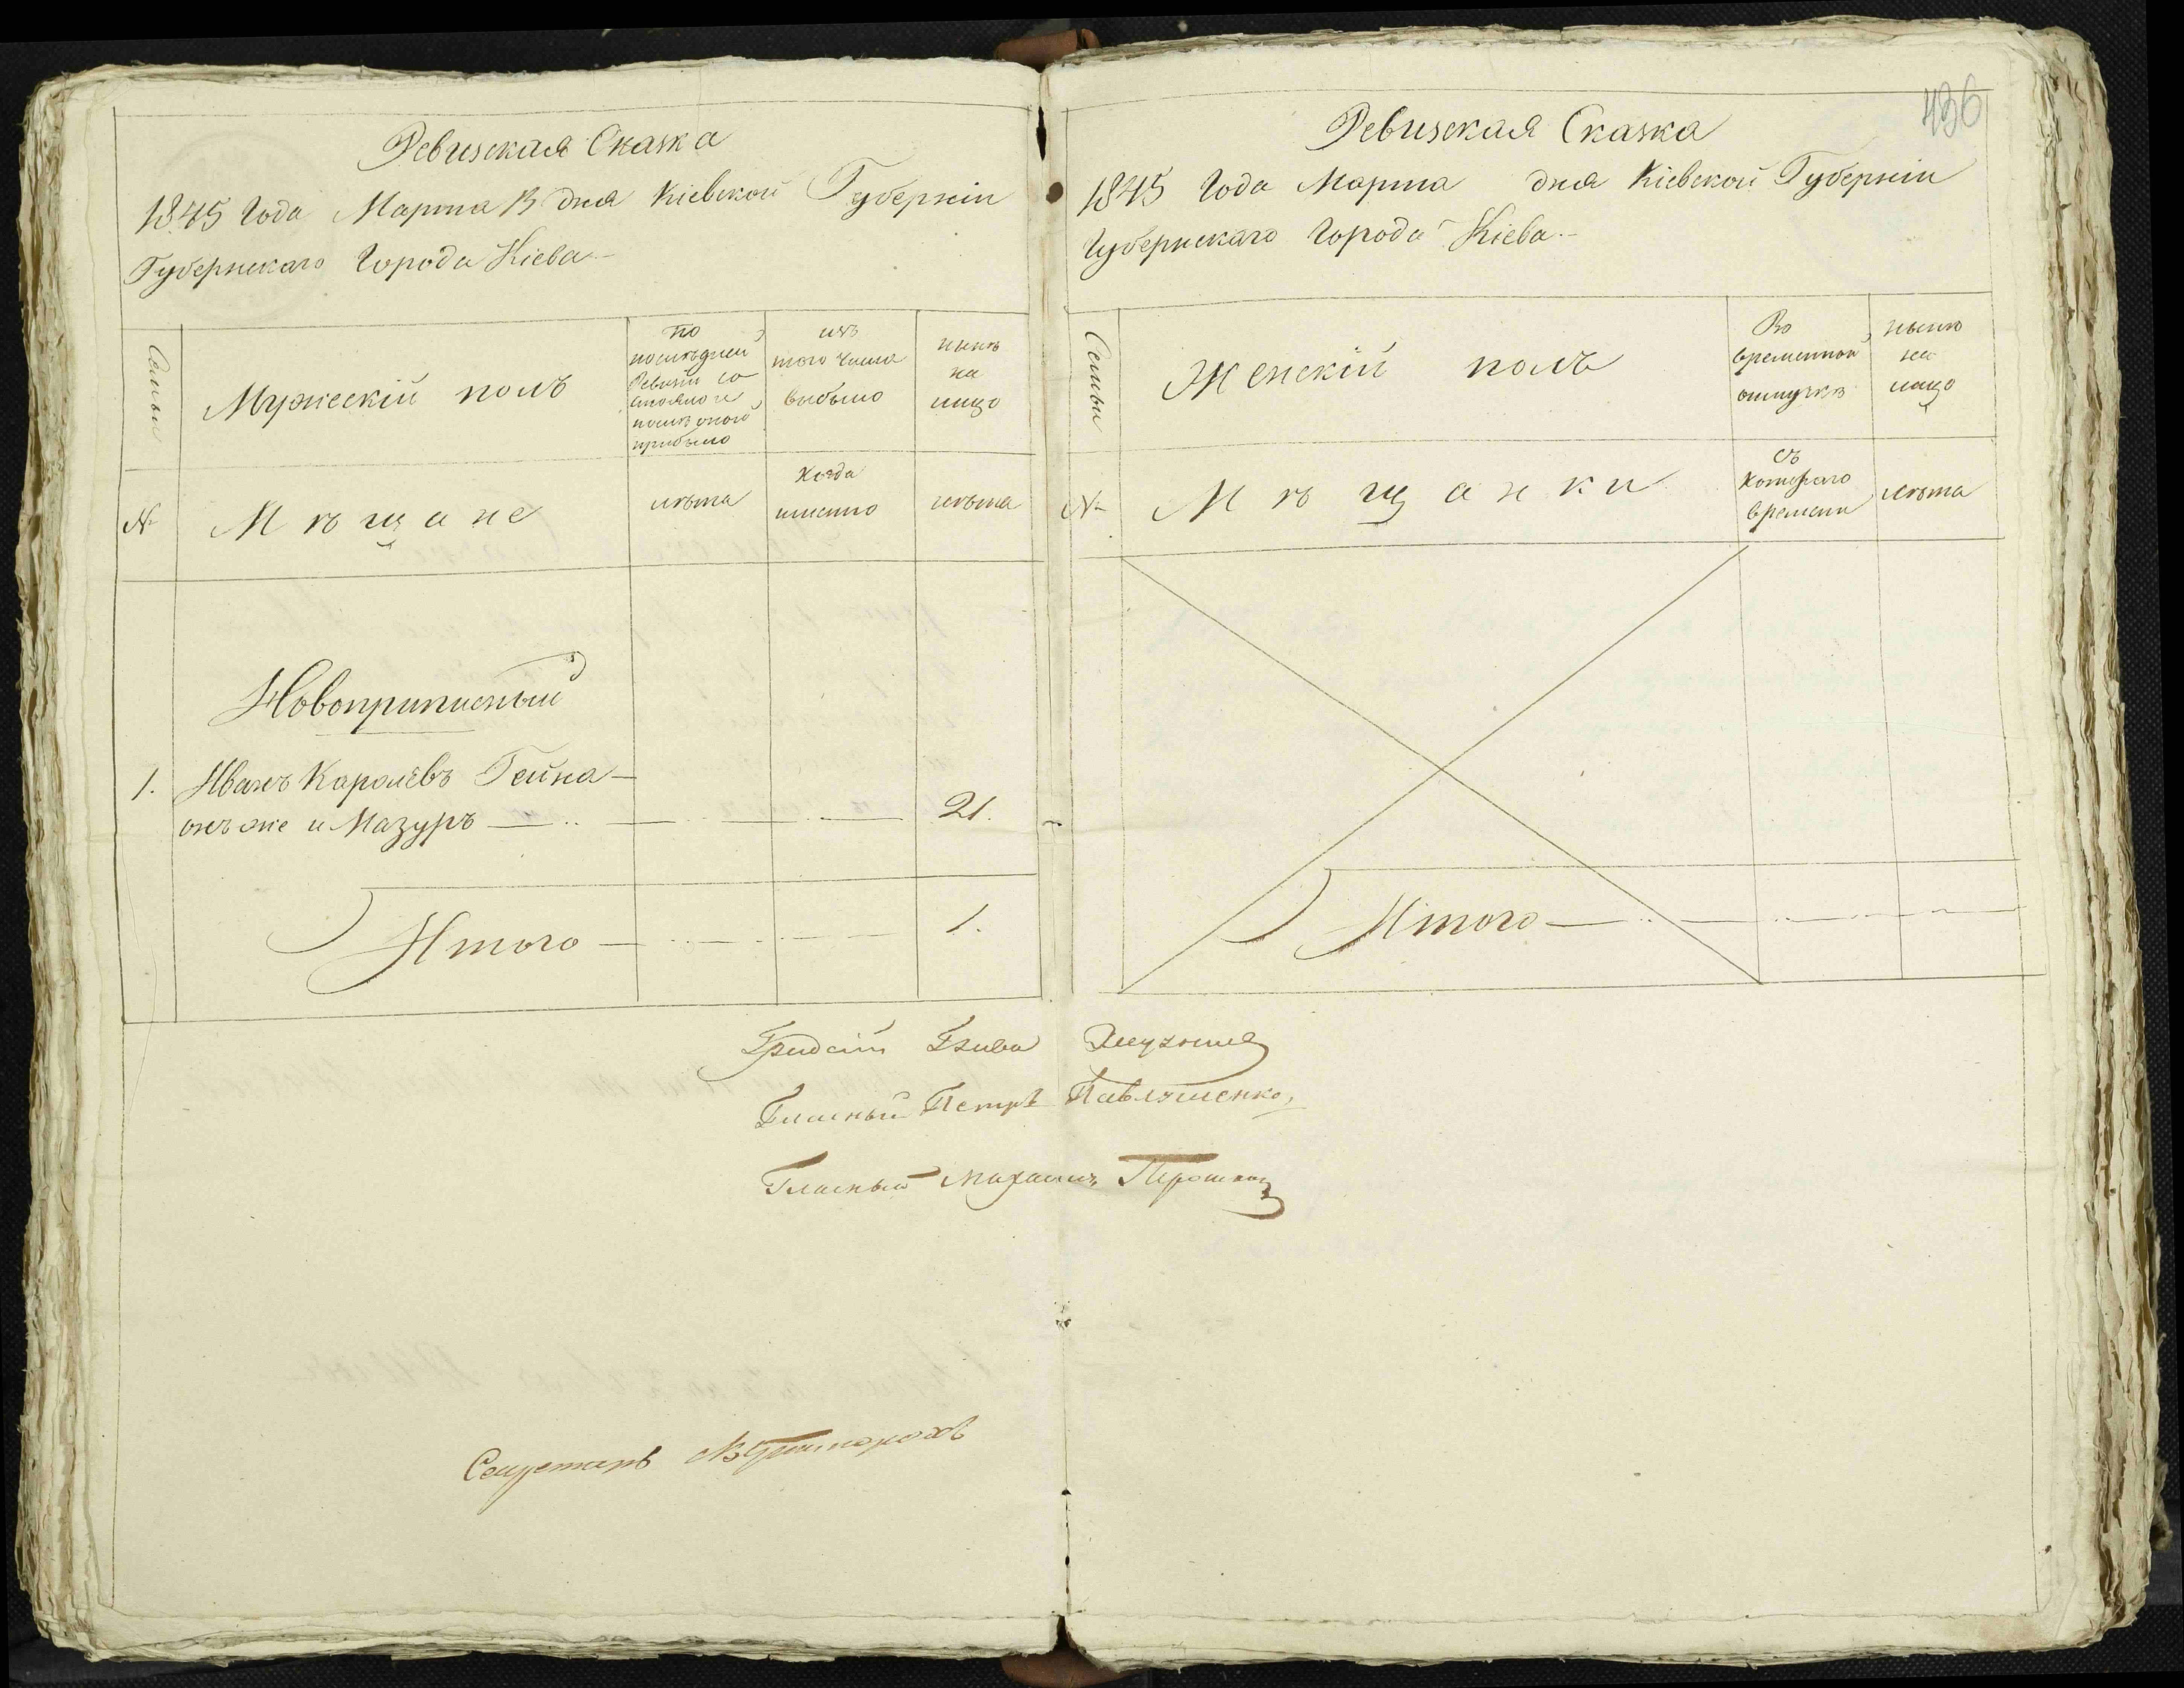 Ревизская Сказка
1845 Года Марта 13 дня Кіевской Губерніи
Губернскаго Города Кіева.
Семьи
Мужескій полъ
по
последней
Ревизіи со
стояло и
после оной
прибыло
изъ
того числа
выбыло
ныне
на
лицо
№
Мѣщане
лѣта
Когда
именно
лѣта
Новоприписный
1. Иванъ Каролевъ Гейна
онъ же и Мазуръ 21.
Итого 1.
436
Ревизская Сказка
1845 Года Марта дня Кіевской Губерніи
Губернскаго Города Кіева.
Семьи
Женскій полъ
Во
временной
отлучкѣ
ныне
на
лицо
№
Мѣщанки
съ
Котораго
времени
лѣта
Итого
Градскій Глава
Гласный Петръ Павлушенко
Гласный Михаилъ
Секретарь